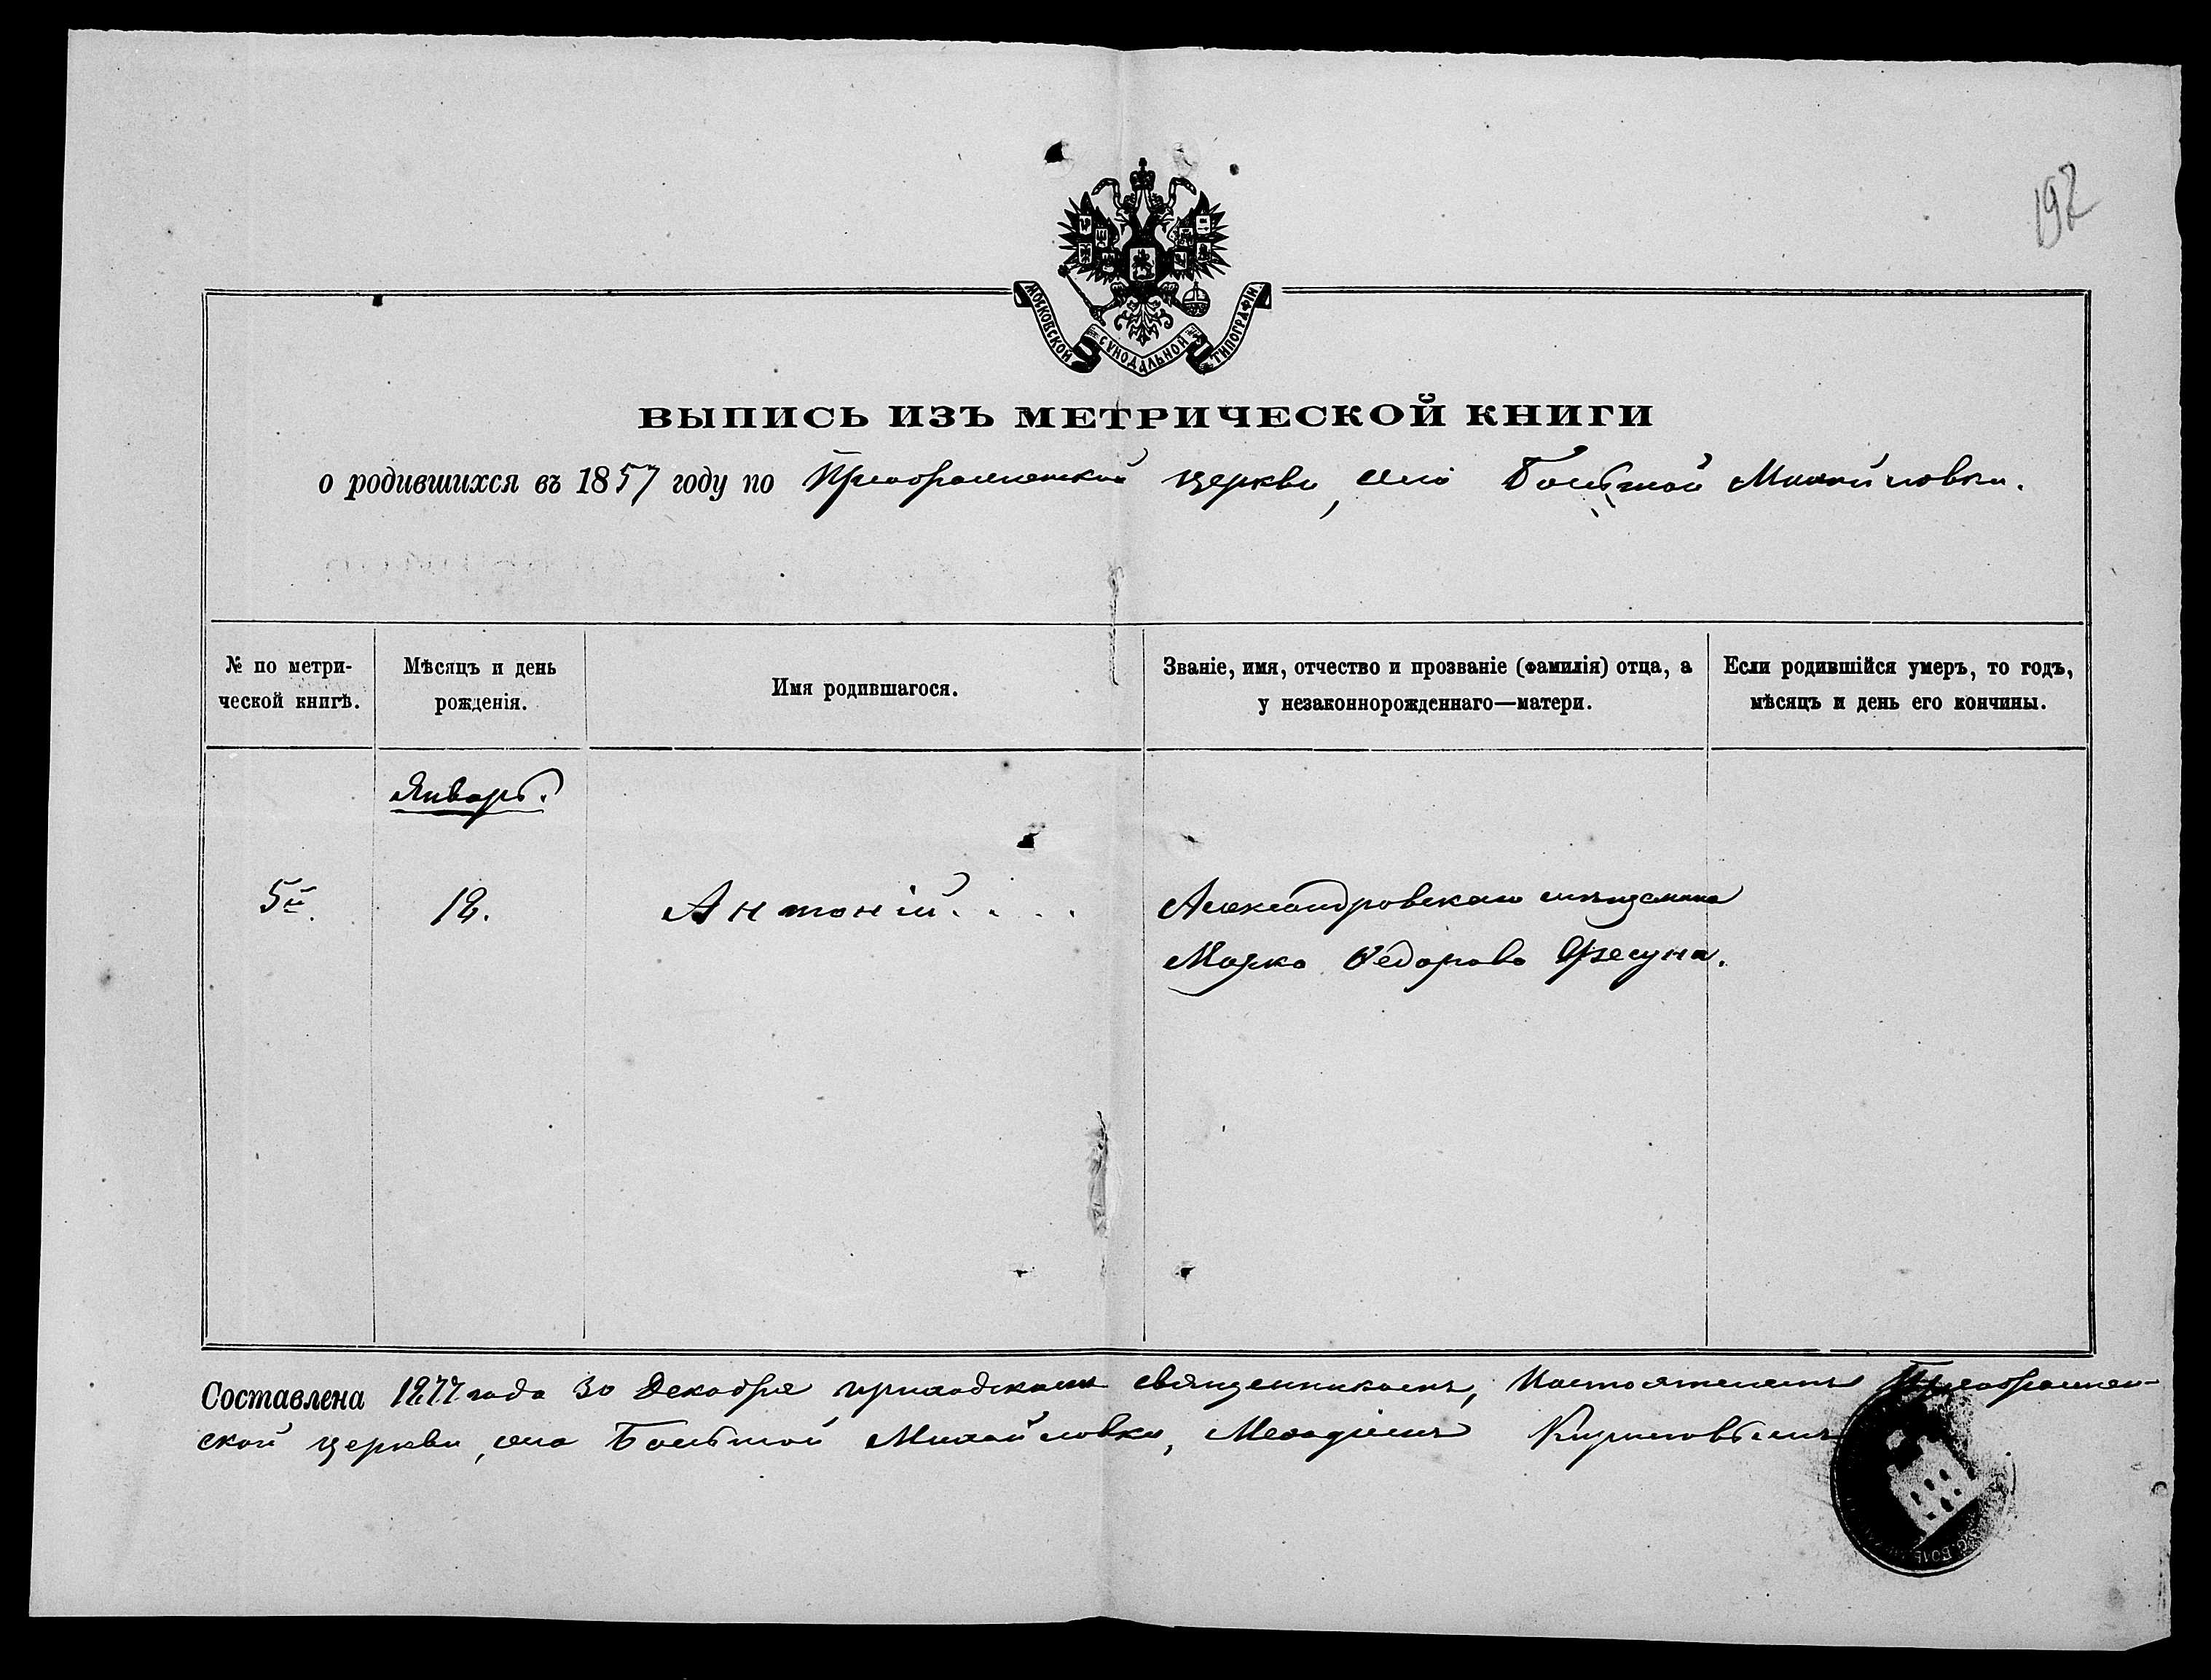 192
МОСКОВСКОЙ СУНОДАЛЬНОЙ ТИПОГРАФІИ
ВЫПИСЬ ИЗЪ МЕТРИЧЕСКОЙ КНИГИ
о родившихся въ 1857 году по Преображенской церкви, села Большой Михайловки.
№ по метри-
ческой книгѣ.
Мѣсяцъ и день
рожденія.
Имя родившагося.
Званіе, имя, отчество и прозваніе (фамилія) отца, а
у незаконнорожденнаго—матери.
Если родившійся умеръ, то годъ,
мѣсяцъ и день его кончины.
Январь.
5й.
12.
Антоній....
Александровскаго мѣщанина
Марка Ѳедорова Фесуна.
Составлена 1877 года 30 Декабря приходскимъ священникомъ, Настоятелемъ Преображен-
ской церкви, села Большой Михайловки, Меѳодіемъ Кириловымъ